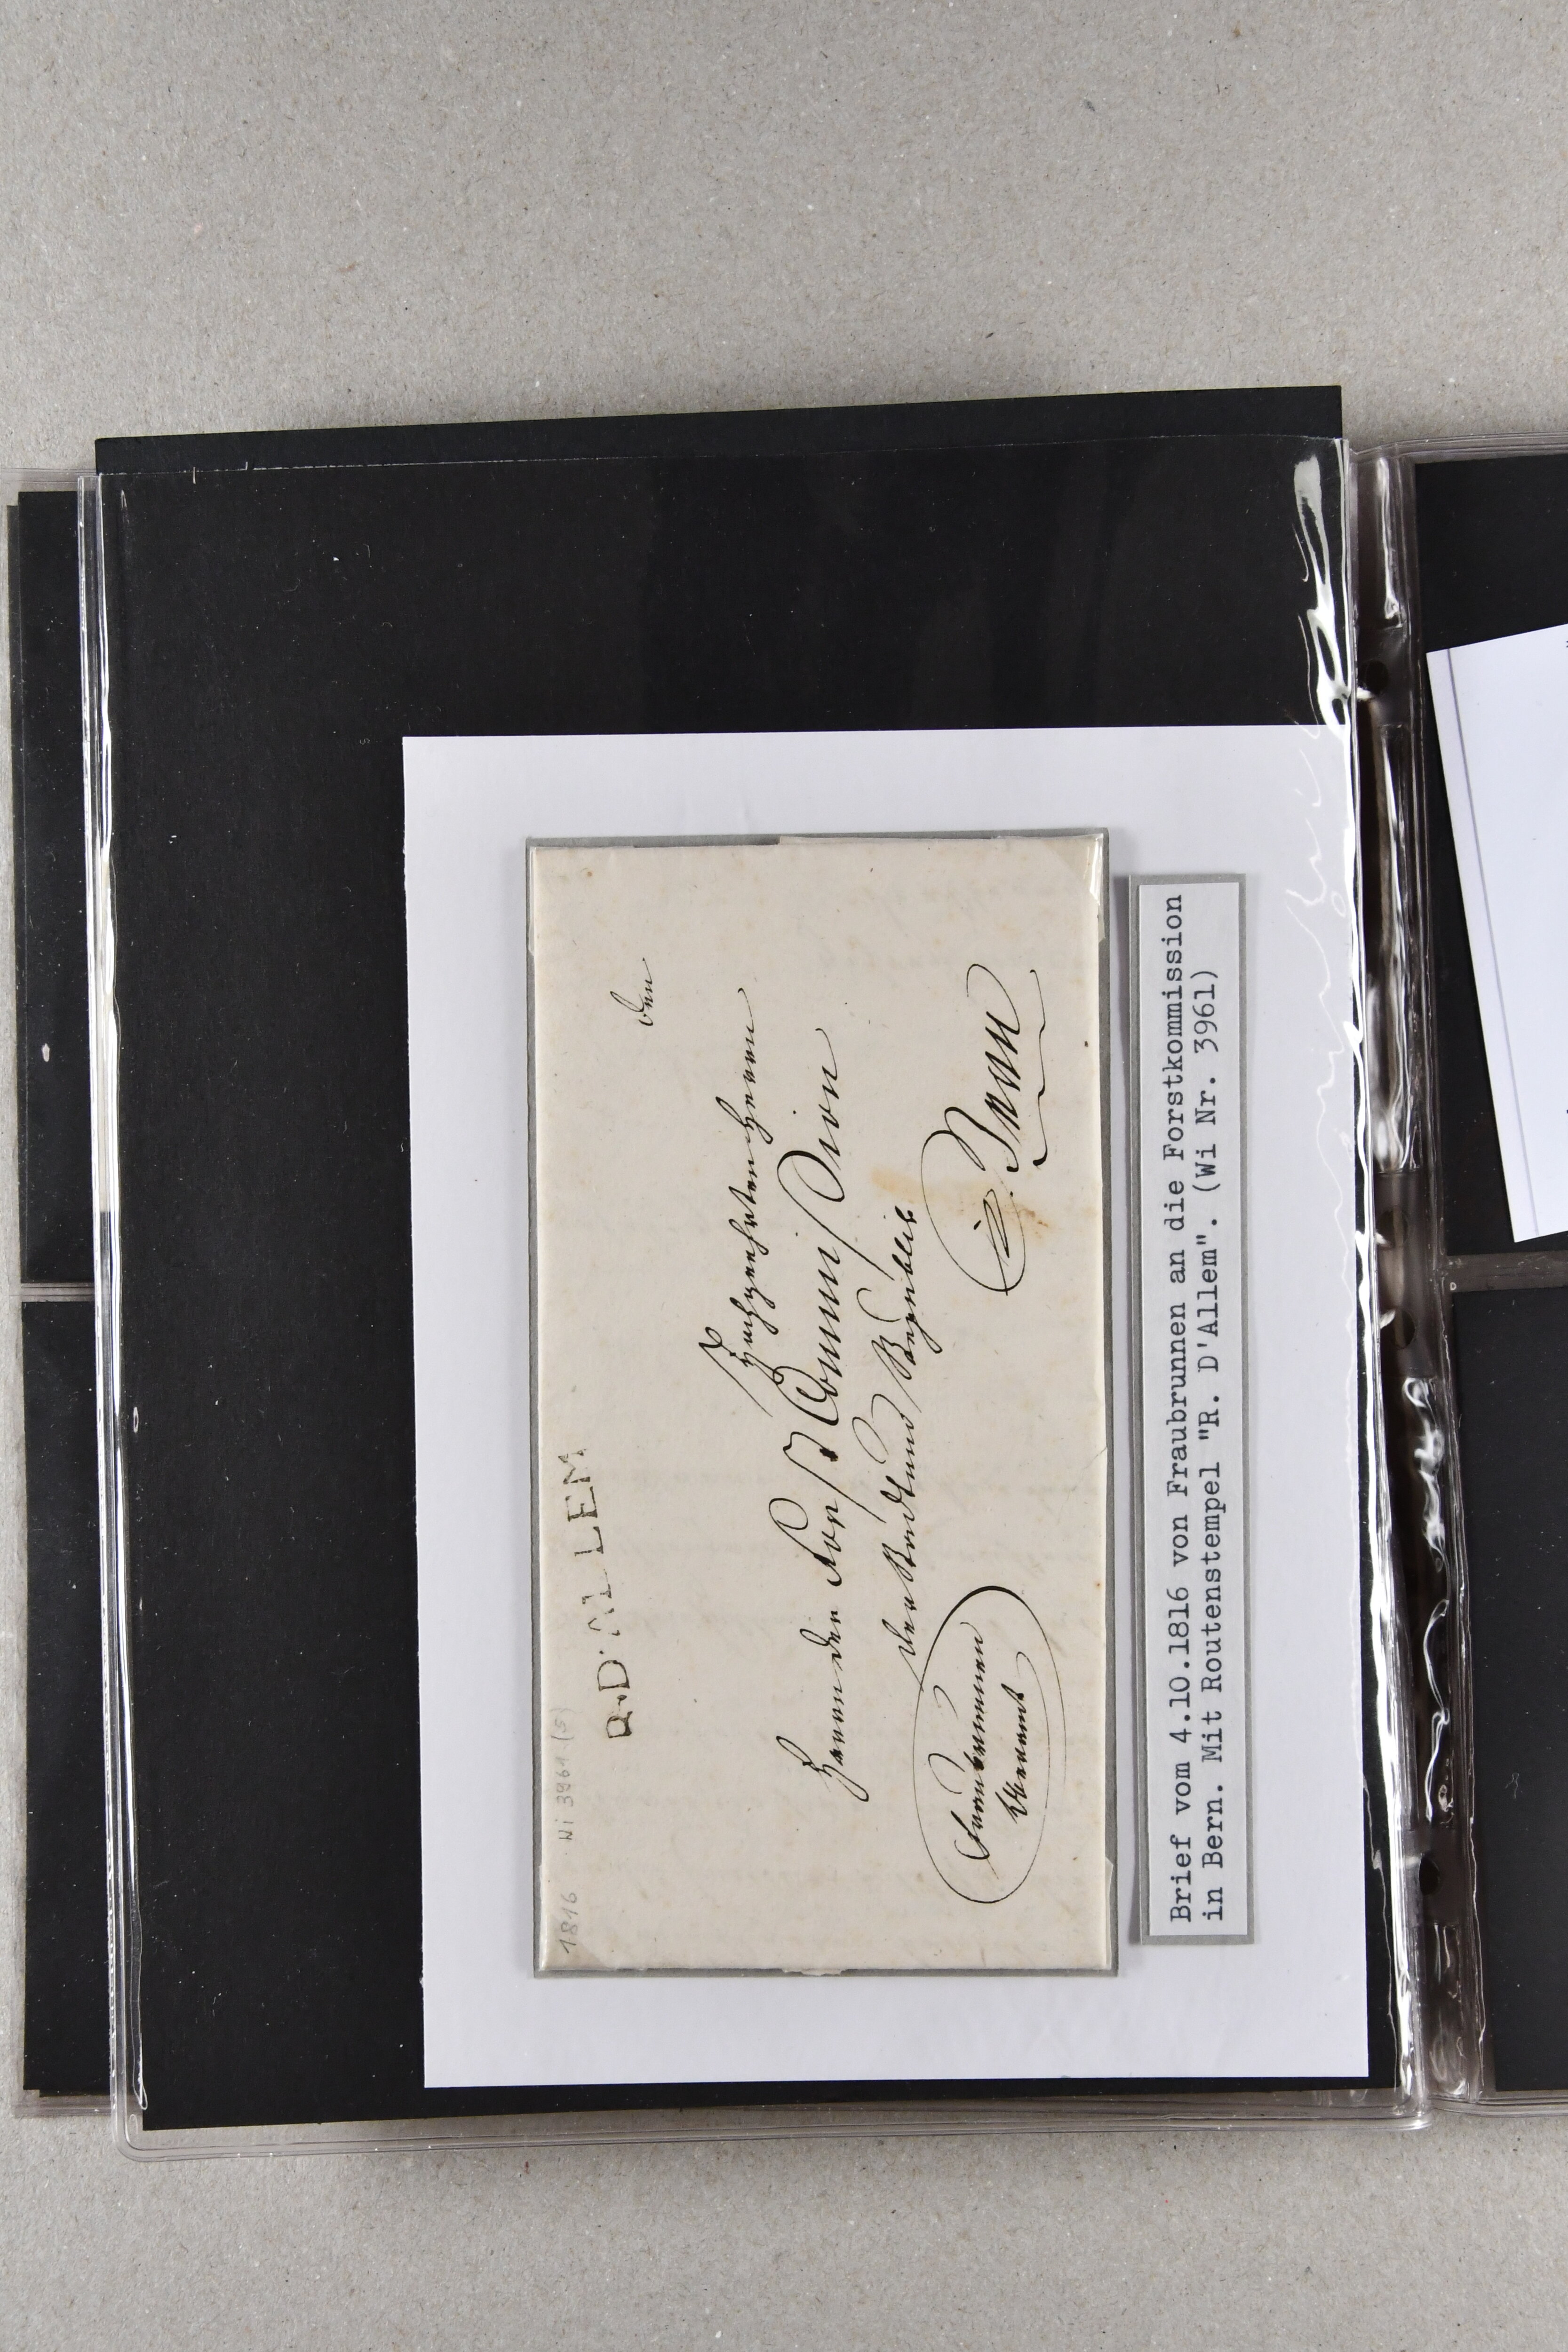 1816 Wi 3961 (5)
R. D'ALLEM
den
Hochgeehrten Herren
Herren der Forst Commission
der Stadt und Republik
in Bern
Fraubrunnen
Brief vom 4.10.1816 von Fraubrunnen an die Forstkommission
in Bern. Mit Routenstempel "R. D'Allem". (Wi Nr. 3961)